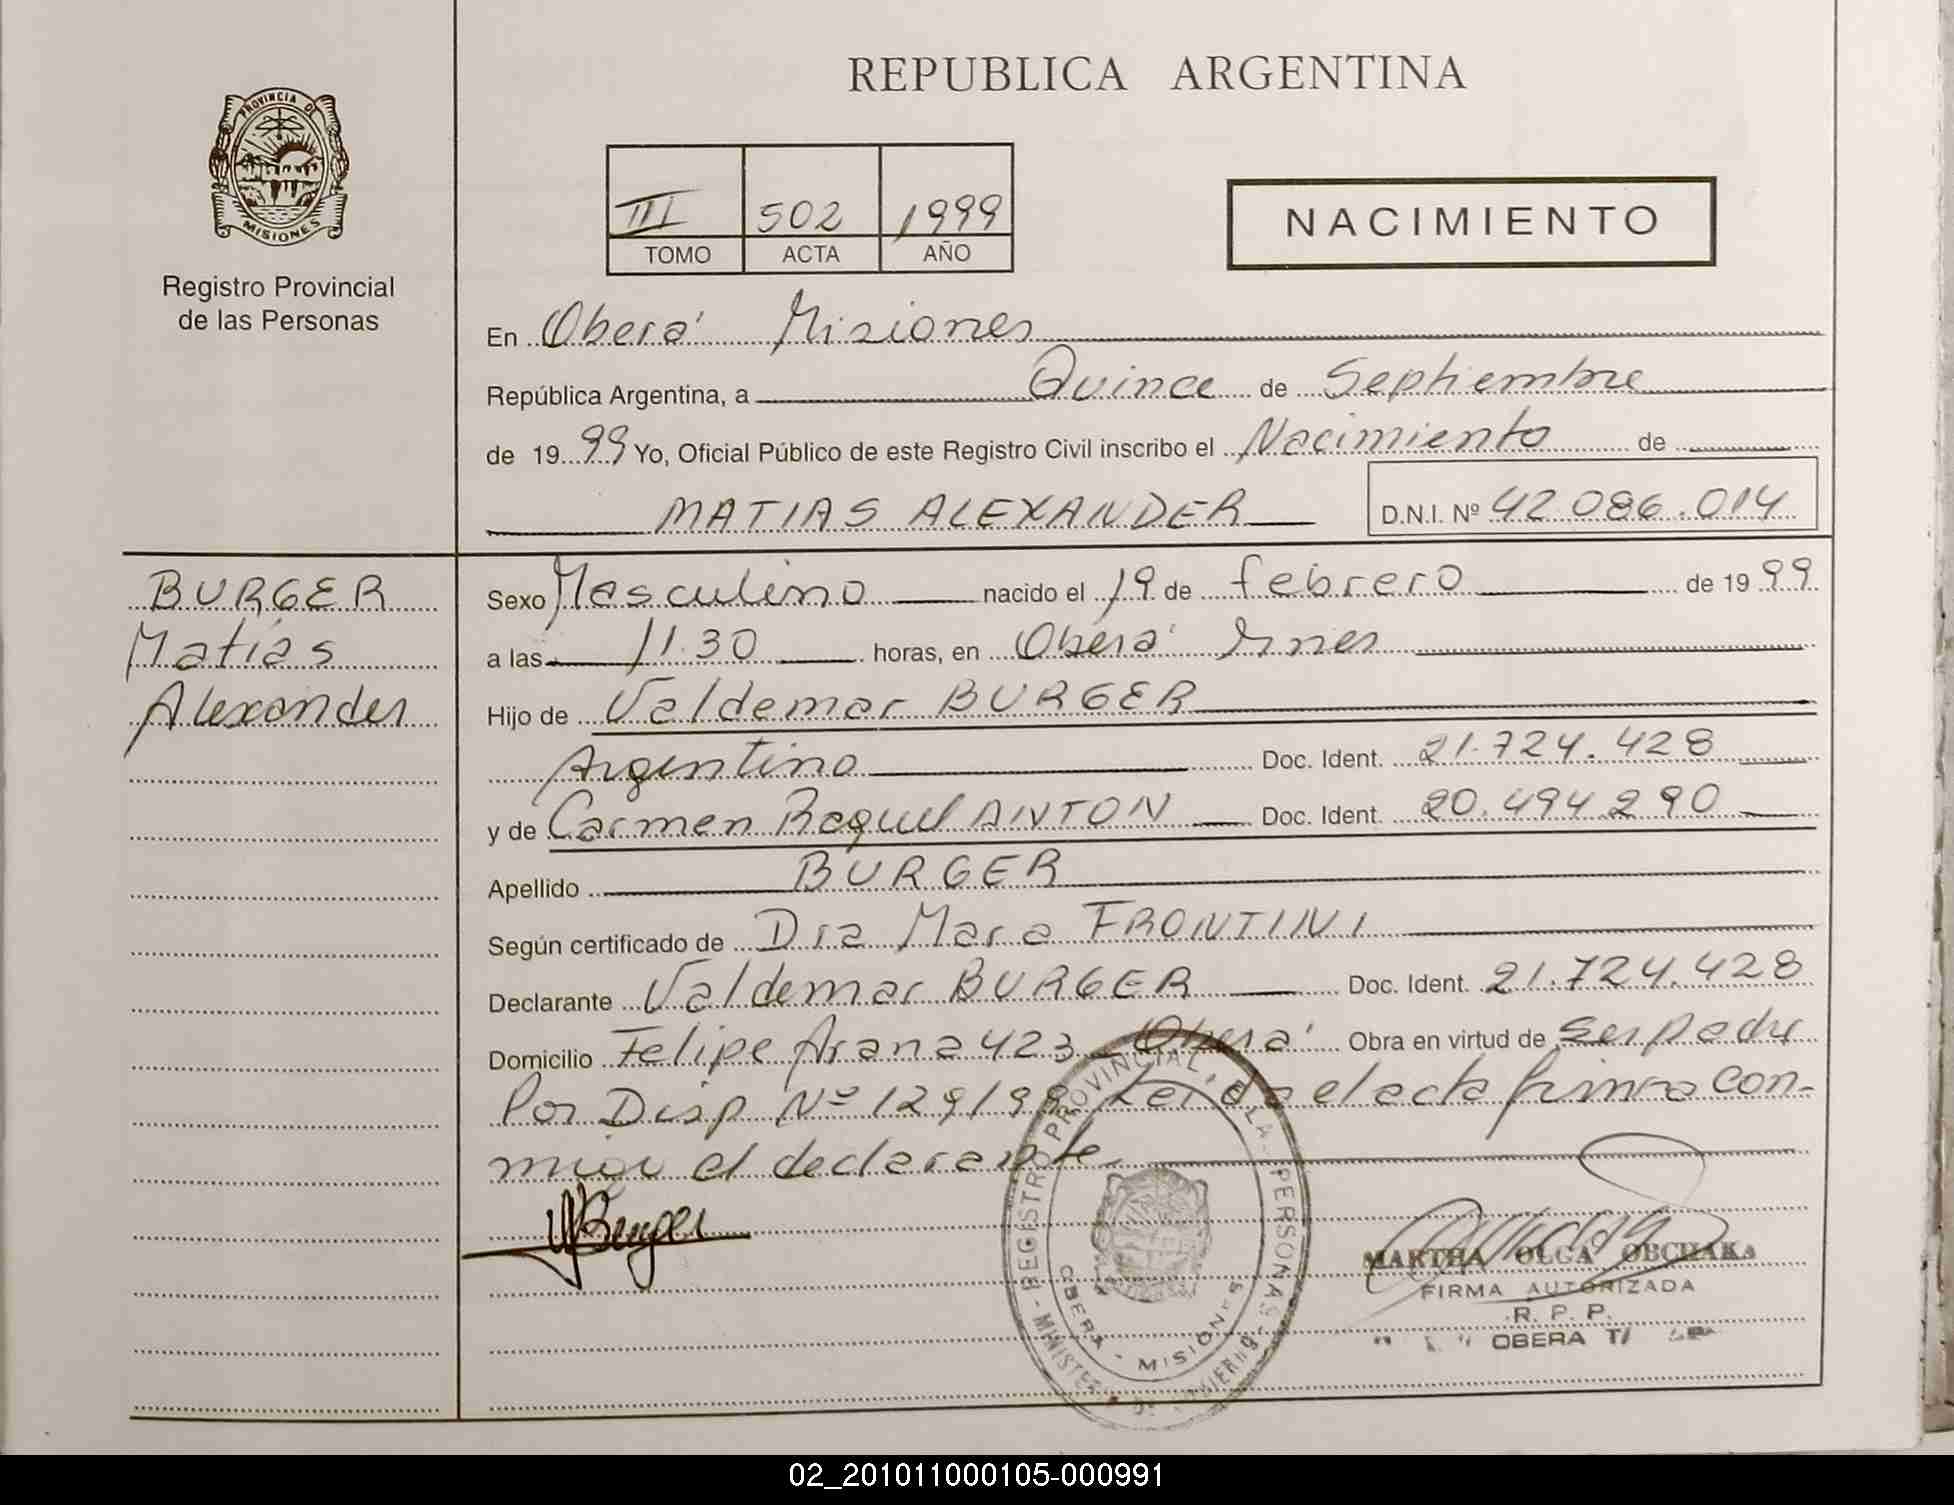 REPUBLICA ARGENTINA
PROVINCIA DE
MISIONES
Registro Provincial
de las Personas
III 502 1999
TOMO ACTA AÑO
NACIMIENTO
En Oberá Misiones
República Argentina, a Quince de Septiembre
de 1999 Yo, Oficial Público de este Registro Civil inscribo el Nacimiento de
MATIAS ALEXANDER D.N.I. Nº 42.086.014
BURGER
Matias
Alexander
Sexo Masculino nacido el 19 de febrero de 1999
a las 11.30 horas, en Oberá Mnes
Hijo de Valdemar BURGER
Argentino Doc. Ident. 21.724.428
y de Carmen Raquel ANTON Doc. Ident. 20.494.290
Apellido BURGER
Según certificado de Dra Mara FRONTINI
Declarante Valdemar BURGER Doc. Ident. 21.724.428
Domicilio Felipe Arana 423 - Oberá Obra en virtud de Ser padre
Por Disp Nº 129/99 Leída el acta firma con-
migo el declarante
Burger
REGISTRO PROVINCIAL DE LAS PERSONAS - MINISTERIO DE GOBIERNO
OBERA - MISIONES
MARTHA OLGA OBCHAKA
FIRMA AUTORIZADA
R. P. P.
OBERA
02_201011000105-000991